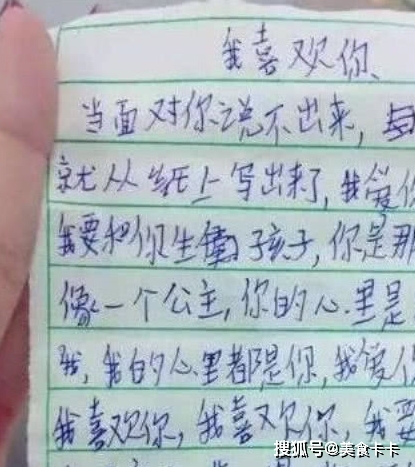 我喜欢你、
当面对你说不出来,
就从纸上写出来了,我爱你
我要和你生 孩子,你是那
像一个公主,你的心里是
我,我的心里都是你,我爱你
我喜欢你,我喜欢你,我要
搜狐号@美食卡卡